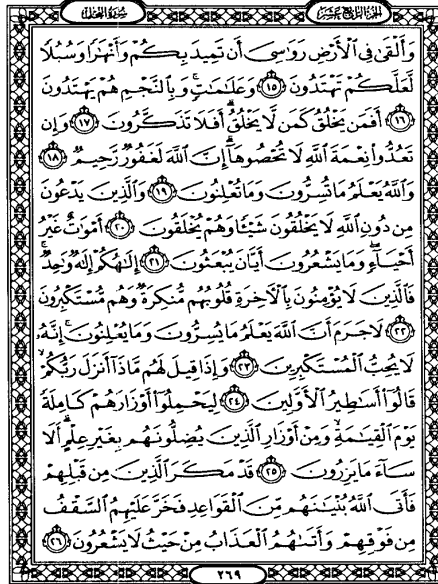 الجزء الرابع عشر
سورة النحل
وَأَلْقَىٰ فِي ٱلْأَرْضِ رَوَٰسِىَ أَن تَمِيدَ بِكُمْ وَأَنْهَٰرًا وَسُبُلًا
لَّعَلَّكُمْ تَهْتَدُونَ ١٥ وَعَلَٰمَٰتٍ ۚ وَبِٱلنَّجْمِ هُمْ يَهْتَدُونَ
١٦ أَفَمَن يَخْلُقُ كَمَن لَّا يَخْلُقُ ۗ أَفَلَا تَذَكَّرُونَ ١٧ وَإِن
تَعُدُّوا۟ نِعْمَةَ ٱللَّهِ لَا تُحْصُوهَآ ۗ إِنَّ ٱللَّهَ لَغَفُورٌ رَّحِيمٌ ١٨
وَٱللَّهُ يَعْلَمُ مَا تُسِرُّونَ وَمَا تُعْلِنُونَ ١٩ وَٱلَّذِينَ يَدْعُونَ
مِن دُونِ ٱللَّهِ لَا يَخْلُقُونَ شَيْـًٔا وَهُمْ يُخْلَقُونَ ٢٠ أَمْوَٰتٌ غَيْرُ
أَحْيَآءٍ ۖ وَمَا يَشْعُرُونَ أَيَّانَ يُبْعَثُونَ ٢١ إِلَٰهُكُمْ إِلَٰهٌ وَٰحِدٌ ۚ
فَٱلَّذِينَ لَا يُؤْمِنُونَ بِٱلْـَٔاخِرَةِ قُلُوبُهُم مُّنكِرَةٌ وَهُم مُّسْتَكْبِرُونَ
٢٢ لَا جَرَمَ أَنَّ ٱللَّهَ يَعْلَمُ مَا يُسِرُّونَ وَمَا يُعْلِنُونَ ۚ إِنَّهُۥ
لَا يُحِبُّ ٱلْمُسْتَكْبِرِينَ ٢٣ وَإِذَا قِيلَ لَهُم مَّاذَآ أَنزَلَ رَبُّكُمْ ۙ
قَالُوٓا۟ أَسَٰطِيرُ ٱلْأَوَّلِينَ ٢٤ لِيَحْمِلُوٓا۟ أَوْزَارَهُمْ كَامِلَةً
يَوْمَ ٱلْقِيَٰمَةِ ۙ وَمِنْ أَوْزَارِ ٱلَّذِينَ يُضِلُّونَهُم بِغَيْرِ عِلْمٍ ۗ أَلَا
سَآءَ مَا يَزِرُونَ ٢٥ قَدْ مَكَرَ ٱلَّذِينَ مِن قَبْلِهِمْ
فَأَتَى ٱللَّهُ بُنْيَٰنَهُم مِّنَ ٱلْقَوَاعِدِ فَخَرَّ عَلَيْهِمُ ٱلسَّقْفُ
مِن فَوْقِهِمْ وَأَتَىٰهُمُ ٱلْعَذَابُ مِنْ حَيْثُ لَا يَشْعُرُونَ ٢٦
٢٦٩